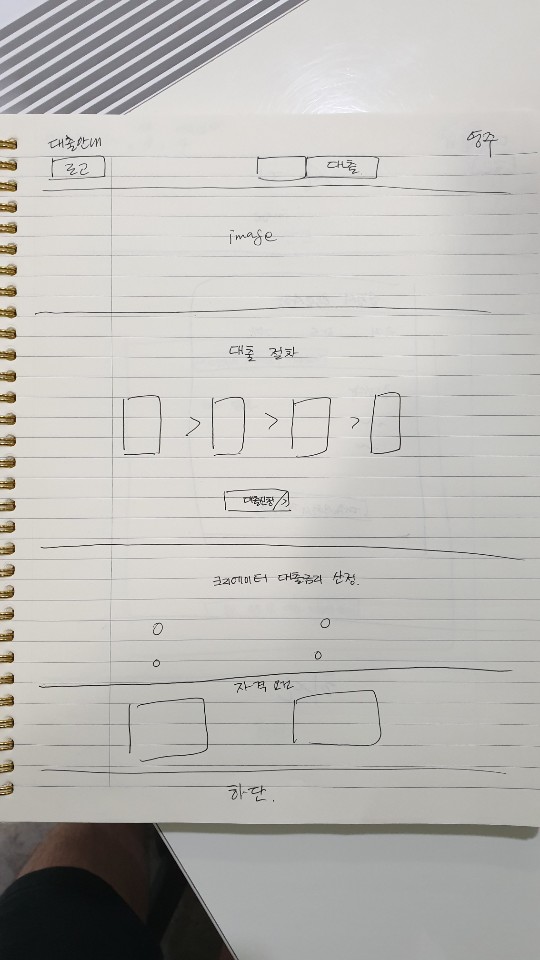 대출안내
영주
로고
대출
image
대출 절차
> > >
대출신청 >
크리에이터 대출금리 산정.
자격 요건
하단.